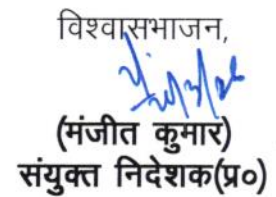 विश्वासभाजन,
(मंजीत कुमार)
संयुक्त निदेशक(प्र०)